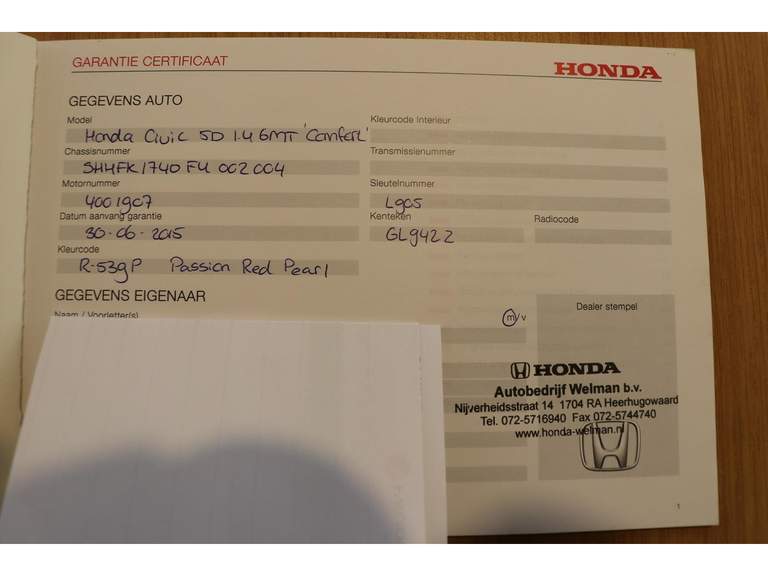 GARANTIE CERTIFICAAT
HONDA
GEGEVENS AUTO
Model
Honda Civic 5D 1.4 6MT 'Comfort'
Kleurcode Interieur
Chassisnummer
SHHFK1740FU002004
Transmissienummer
Motornummer
4001907
Sleutelnummer
L905
Datum aanvang garantie
30-06-2015
Kenteken
GL9422
Radiocode
Kleurcode
R-539P Passion Red Pearl
GEGEVENS EIGENAAR
Naam / Voorletter(s)
m/v
Dealer stempel
HONDA
Autobedrijf Welman b.v.
Nijverheidsstraat 14 1704 RA Heerhugowaard
Tel. 072-5716940 Fax 072-5744740
www.honda-welman.nl
1